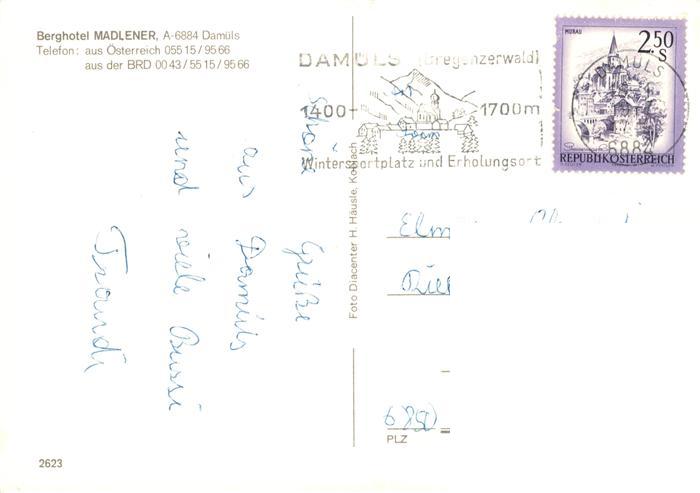 Berghotel MADLENER, A-6884 Damüls
Telefon: aus Österreich 055 15 / 95 66
aus der BRD 00 43 / 55 15 / 95 66
DAMÜLS (Bregenzerwald)
1400- 1700m
Wintersportplatz und Erholungsort
MURAU
2.50
S
REPUBLIK ÖSTERREICH
6884
Schöne Grüße
aus Damüls
und viele Bussi
Traudi
Foto Diacenter H. Häusle, Koblach
Elm
PLZ
2623